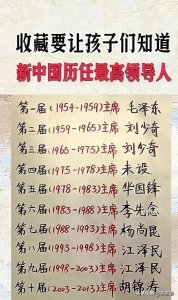 收藏要让孩子们知道
新中国历任最高领导人
第一届(1954-1959)主席 毛泽东
第二届(1959-1965)主席 刘少奇
第三届(1965-1975)主席 刘少奇
第四届(1975-1978)主席 未设
第五届(1978-1983)主席 华国锋
第六届(1983-1988)主席 李先念
第七届(1988-1993)主席 杨尚昆
第八届(1993-1998)主席 江泽民
第九届(1998-2003)主席 江泽民
第十届(2003-2013)主席 胡锦涛